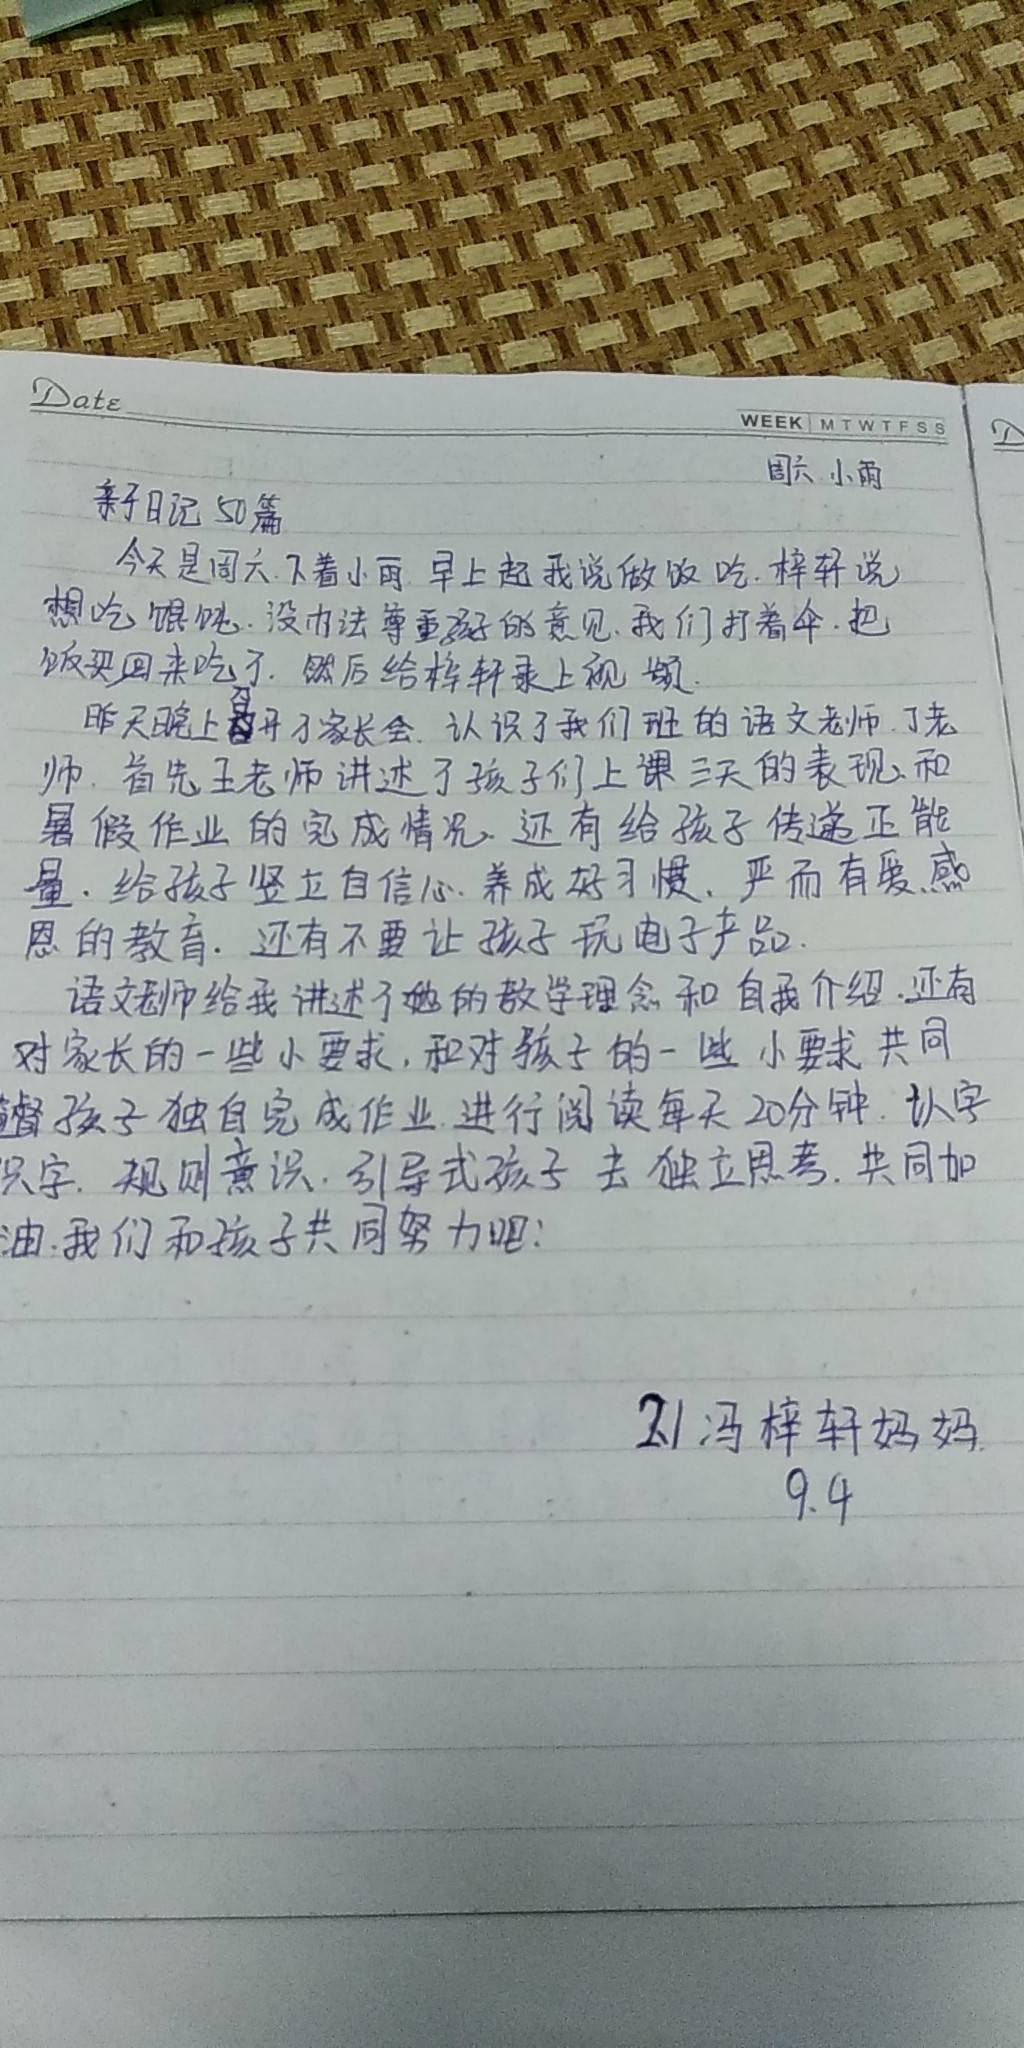 Date
WEEK M T W T F S S
周六 小雨
亲子日记 50篇
今天是周六.下着小雨 早上起我说做饭吃.梓轩说
想吃馄饨.没办法尊重孩子的意见.我们打着伞.把
饭买回来吃了.然后给梓轩录上视频.
昨天晚上开了家长会.认识了我们班的语文老师.丁老
师.首先王老师讲述了孩子们上课三天的表现.和
暑假作业的完成情况.还有给孩子传递正能
量.给孩子竖立自信心.养成好习惯.严而有爱.感
恩的教育.还有不要让孩子玩电子产品.
语文老师给我讲述了她的教学理念和自我介绍.还有
对家长的一些小要求,和对孩子的一些小要求共同
督孩子独自完成作业.进行阅读每天20分钟.认字
识字.规则意识.引导式孩子去独立思考.共同加
油.我们和孩子共同努力吧!
2.1冯梓轩妈妈.
9.4